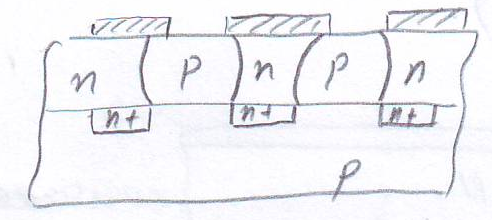 n p n p n
n+ n+ n+
p